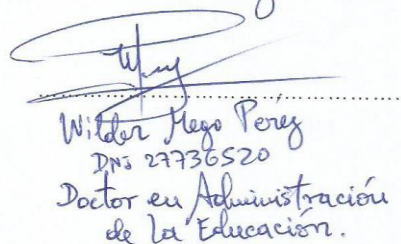 Wilder Mego Perez
DNI 27736520
Doctor en Administración
de la Educación.